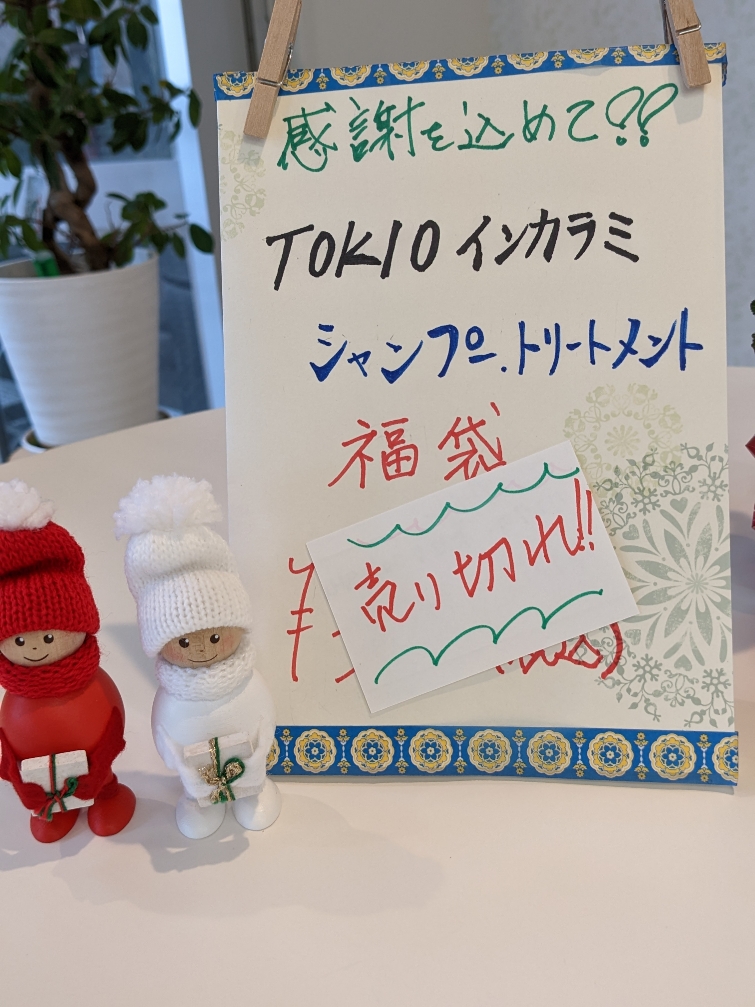 感謝を込めて??
TOKIO インカラミ
シャンプー.トリートメント
福袋
売り切れ!!
¥
税込)